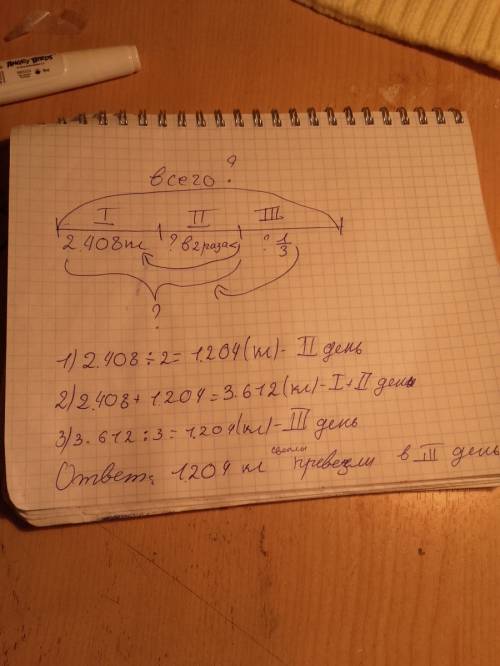 ANGRY BIRDS
?
всего
I II III
2.408 кг ? в 2 раза < ? 1/3
?
1) 2.408 ÷ 2 = 1.204 (кг) - II день
2) 2.408 + 1.204 = 3.612 (кг) - I + II день
3) 3.612 : 3 = 1.204 (кг) - III день
свеклы
Ответ: 1204 кг привезли в III день